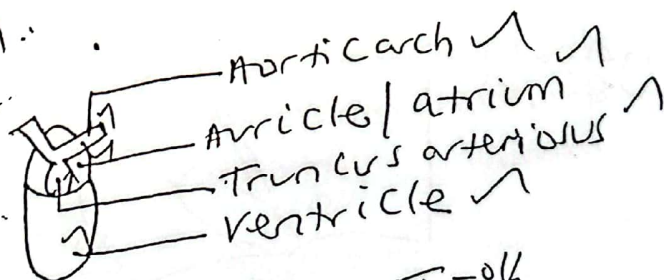 Aortic arch
Auricle / atrium
Truncus arteriosus
ventricle